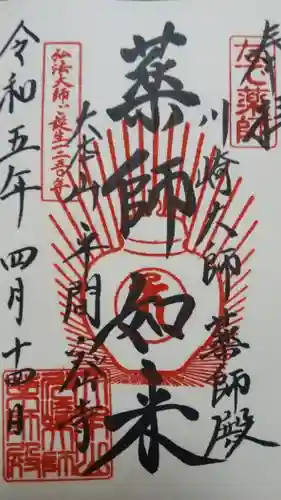 奉拝
なで薬師
川崎大師薬師殿
薬師如来
弘法大師ご誕生一二五〇年
大本山 平間寺
令和五年 四月十四日